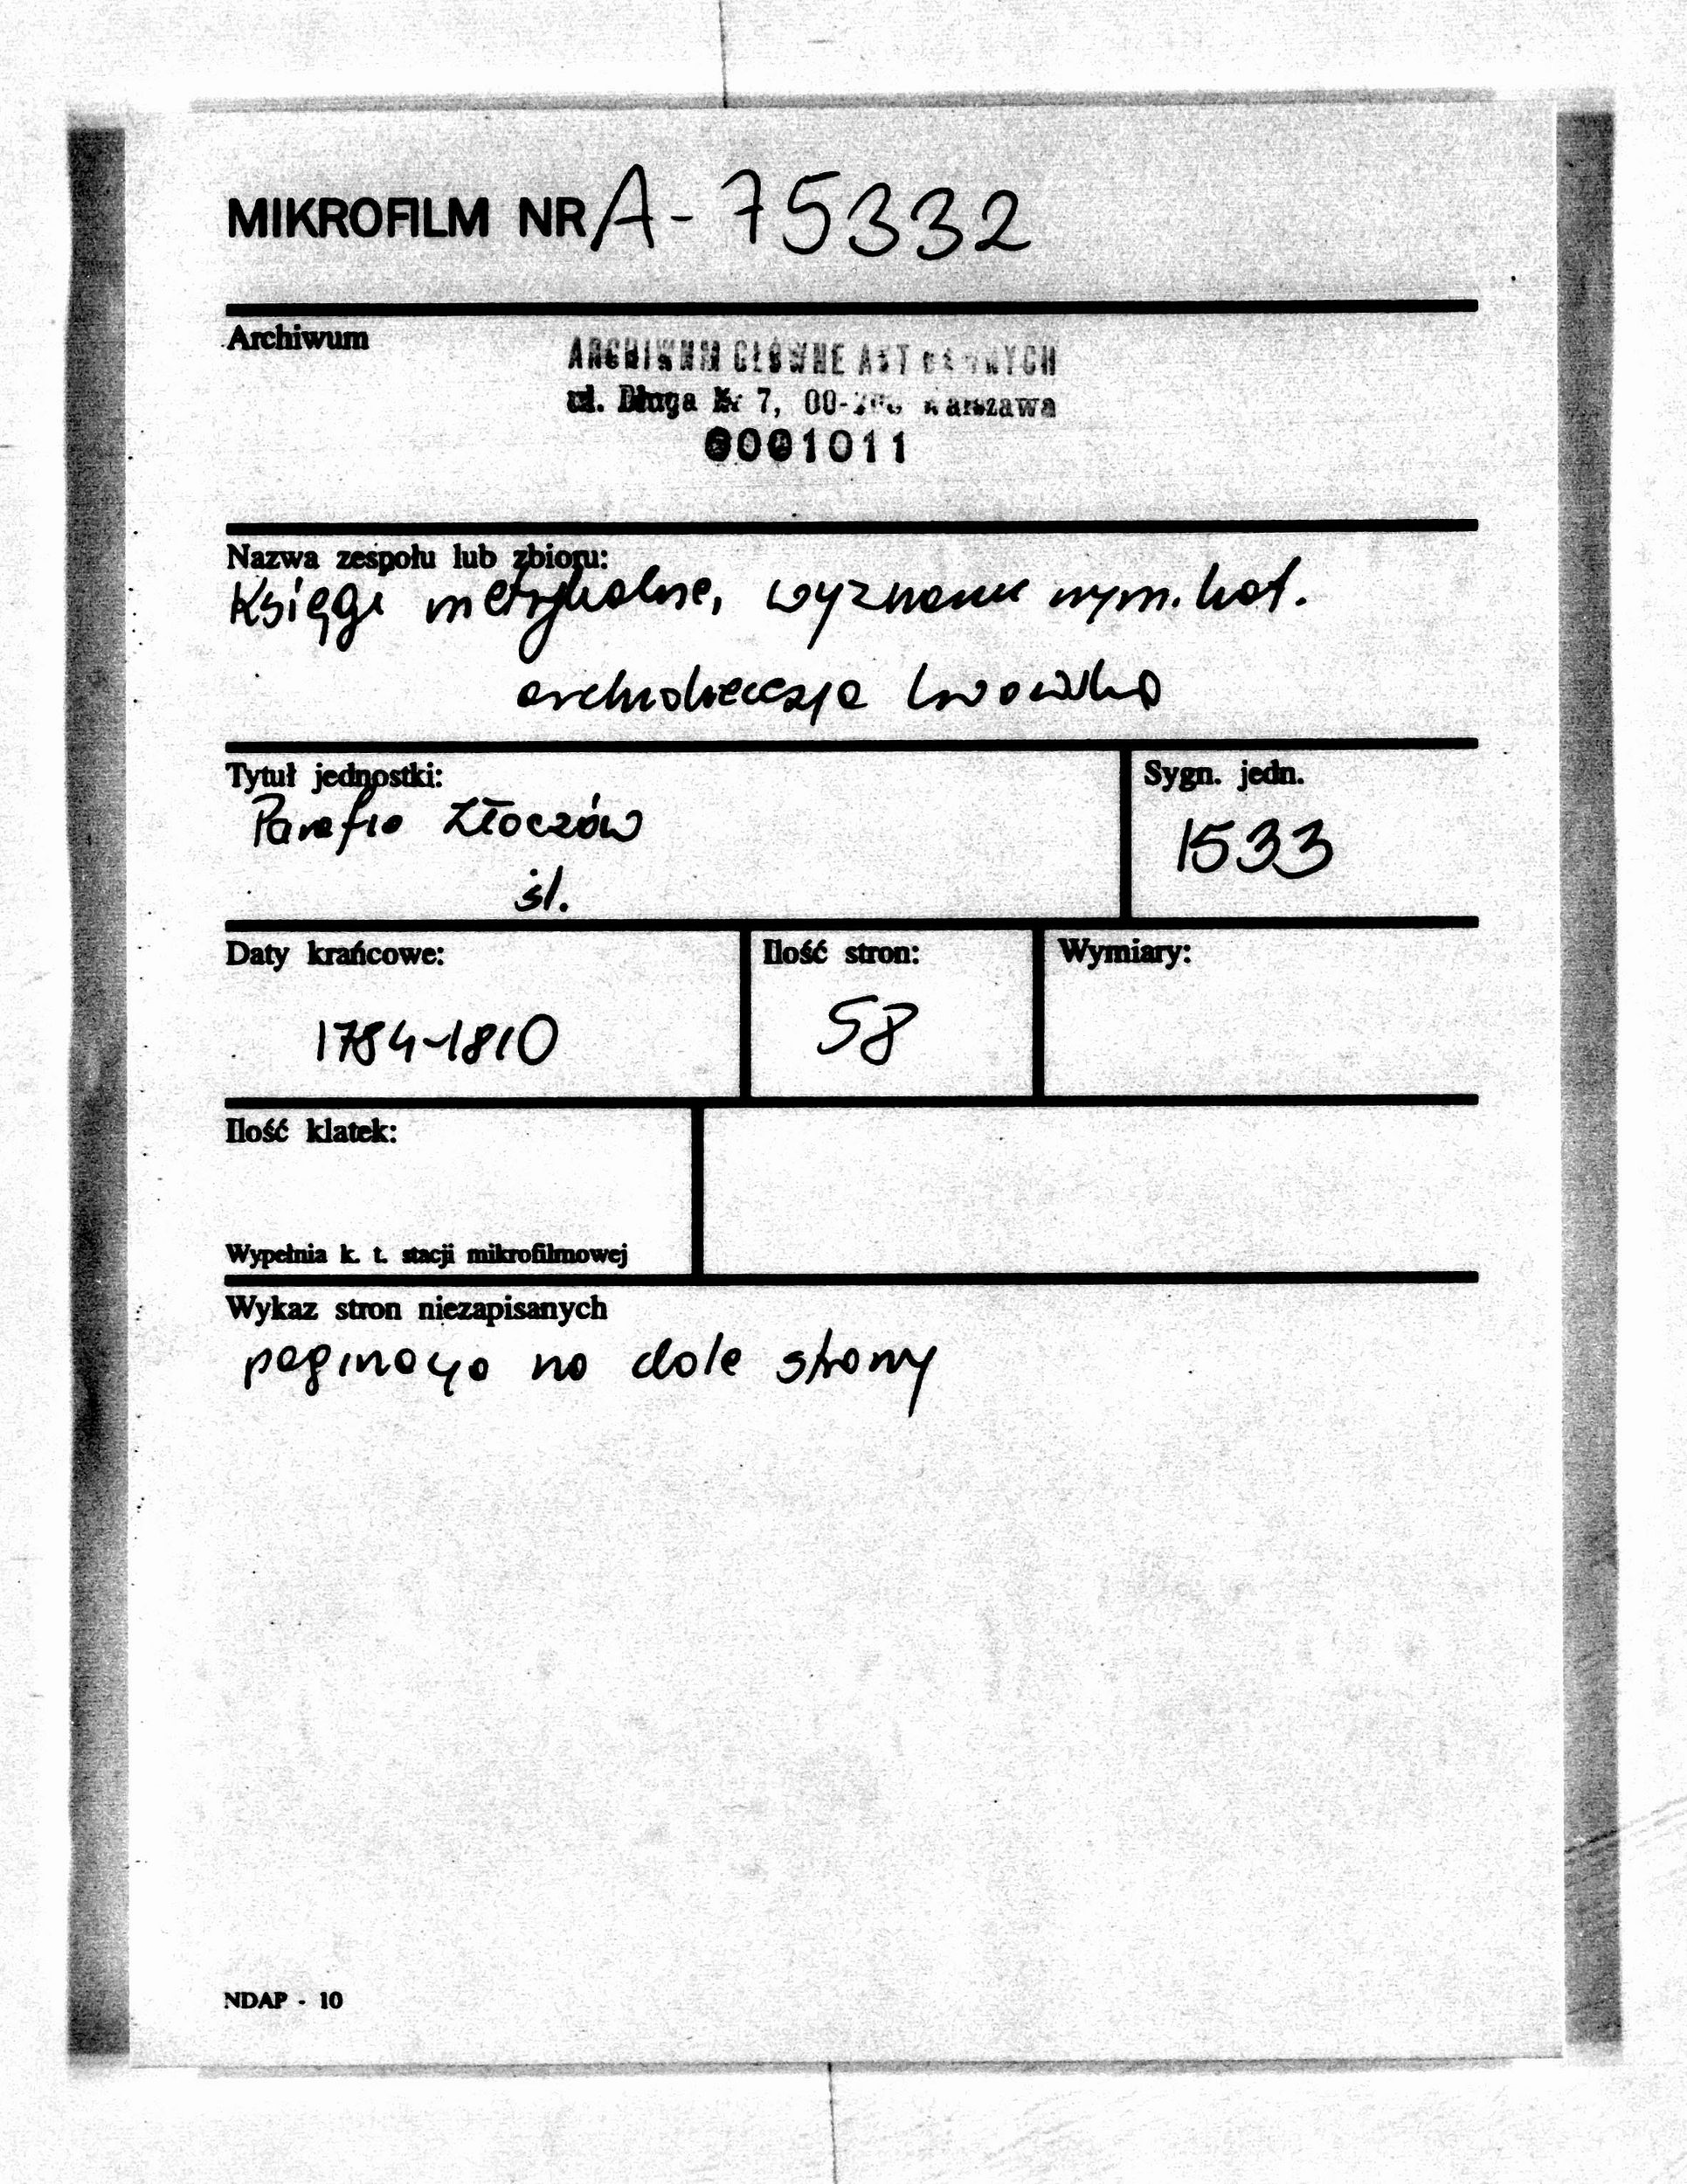 MIKROFILM NR A-75332
Archiwum
ARCHIWUM GŁÓWNE AKT DAWNYCH
ul. Długa Nr 7, 00-   Warszawa
0001011
Nazwa zespołu lub zbioru:
Księgi metrykalne, wyznanie rzym. kat.
archidiecezja lwowska
Tytuł jednostki:
Parafia Złoczów
śl.
Sygn. jedn.
1533
Daty krańcowe:
1784-1810
Ilość stron:
58
Wymiary:
Ilość klatek:
Wypełnia k. t. stacji mikrofilmowej
Wykaz stron niezapisanych
paginacja na dole strony
NDAP - 10